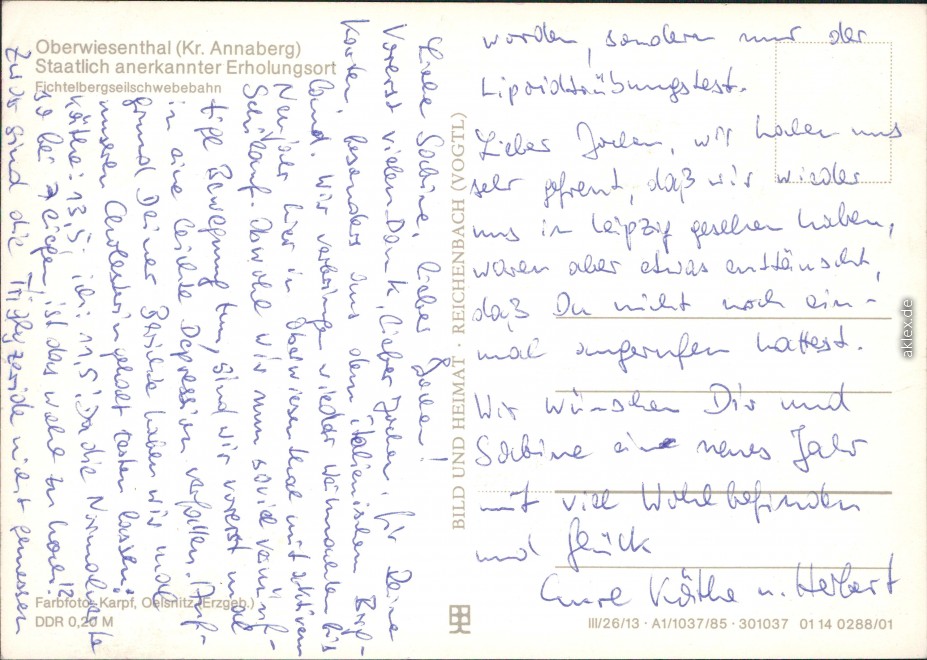 Oberwiesenthal (Kr. Annaberg)
Staatlich anerkannter Erholungsort
Fichtelbergseilschwebebahn
Liebe Sabine, lieber Jochen!
Vorerst vielen Dank, lieber Jochen, für Deine
Karten, besonders aus dem italienischen Berg-
land. Wir verbringen wieder Weihnachten bis
Neujahr hier in Oberwiesenthal mit aktivem
Schilauf. Obwohl wir nun soviel vernünf-
tige Bewegung tun, sind wir vorerst mal
in eine leichte Depression verfallen. Auf-
grund Deiner Berichte haben wir mal
unseren Cholesteringehalt testen lassen:
Käthe: 13,5; ich: 11,5. Da die Normalwerte
so bei 7 liegen, ist das wohl zu hoch!?
Zwar sind die Triglyzeride nicht gemessen
worden, sondern nur der
Lipoidtrübungstest.
Lieber Jochen, wir haben uns
sehr gefreut, daß wir wieder
uns in Leipzig gesehen haben,
waren aber etwas enttäuscht,
daß Du nicht noch ein-
mal angerufen hattest.
Wir wünschen Dir und
Sabine ein neues Jahr
mit viel Wohlbefinden
und Glück
Eure Käthe u. Herbert
BILD UND HEIMAT · REICHENBACH (VOGTL)
Farbfoto: Karpf, Oelsnitz (Erzgeb.)
DDR 0,20 M
III/26/13 · A1/1037/85 · 301037 01 14 0288/01
aklex.de